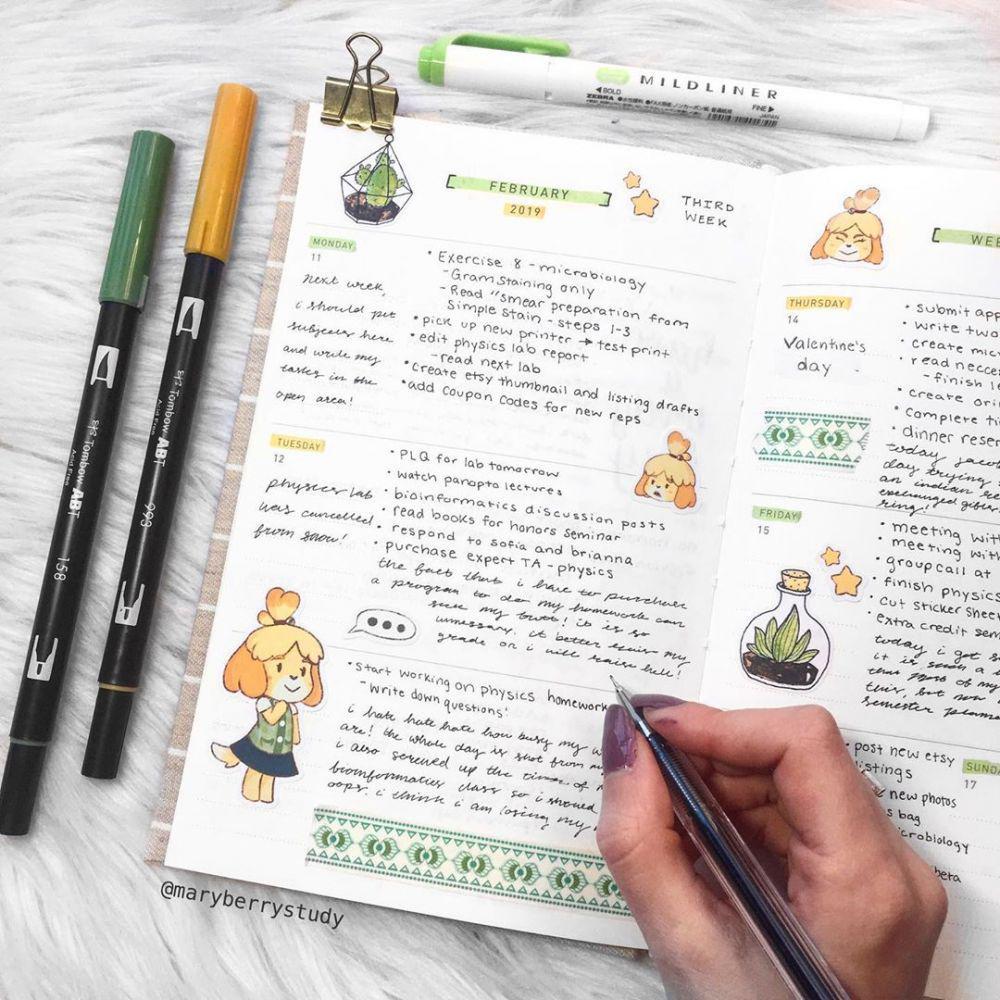 MILDLINER
BOLD
FINE
ZEBRA
JAPAN
FEBRUARY
2019
THIRD
WEEK
MONDAY
11
next week,
i should put
subjects here
and write my
tasks in the
open area!
• Exercise 8 - microbiology
- Gram staining only
- Read "smear preparation from
Simple Stain - steps 1-3
• pick up new printer → test print
• edit physics lab report
- read next lab
• create etsy thumbnail and listing drafts
• add coupon codes for new reps
TUESDAY
12
physics lab
was cancelled
from snow!
• PLQ for lab tomorrow
• watch panopto lectures
• bioinformatics discussion posts
• read books for honors seminar
• respond to sofia and brianna
• purchase expert TA - physics
the fact that i have to purchase
a program to do my homework can
suck my butt! it is so
unnessary. it better my
grade or i will raise hell!
• start working on physics homework
- write down
questions
i hate hate hate how busy my
are! the whole day is shot from
i also screwed up the time of
bioinformatics class so i showed
oops. i think i am losing my
WEE
THURSDAY
14
Valentine's
day
• submit app
• write two
• create mic
• read necces
- finish l
• create ori
• complete ti
• dinner reser
today jaco
day trying
an indian re
exchanged gifts
ring!
FRIDAY
15
• meeting with
• meeting with
• group call at
• finish physics
• cut sticker shee
• extra credit sem
today i got s
it is such a
that most of my
this, but now
semester plann
• post new etsy
listings
new photos
bag
icrobiology
SUND
17
Tombow ABT
993
Tombow ABT
158
@maryberrystudy